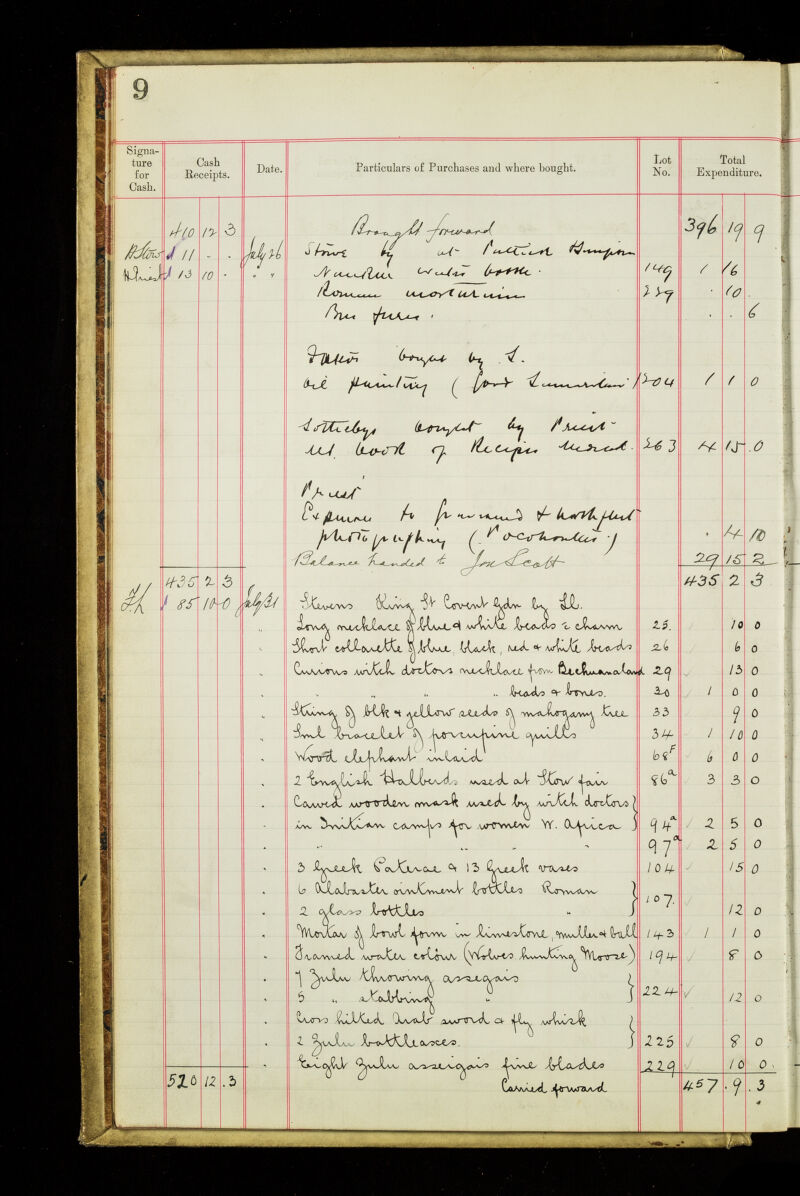 9
Signature for Cash. Cash Receipts. Date. Particulars of Purchases and where bought. Lot No. Total Expenditure.
410 12 3 Brought forward 396 19 9
BStow 11 - - July 26 Stowe by at Puttick Simpson
13 10 - " " water bottle. 149 1 16
Roman mortarium 229 - 10
Bus fares. . . 6
bought by S.
oil painting ( 204 1 1 0
Sothebys bought by Priest
book of Recipes 263 4 15 0
Priest
Expenses to &
photographing (Pocohontas) . 4 10
Balance handed to Jno Scott 29 15 2
435 2 3 435 2 3
85 10 0 July 31 Stevens King St Covent Gdn by Ll.
Long necklace of blue & white beads c charm 25. 10 0
Short collarette of blue, black, red & white beads 26 6 0
Curious witch doctors necklace from Bechuanaland 29 13 0
" " " .. beads & bones. 30 1 0 0
String of blk & yellow seeds of mahogany tree 33 9 0
Sml bracelet of porcupine quills 34 1 10 0
Wood elephant inlaid 68F 6 0 0
2 English Halberds used at Stow fair 86a 3 3 0
Carved wooden mask used by witch doctors
in Initian camps for women W. Africa 94a 2 5 0
" " " 97a 2 5 0
3 Greek Paterae & 13 Greek vases 104 15 0
6 Alabaster ointment bottles Roman
2 glass bottles " 107. 12 0
Mortar of bowl form in limestone, muller & ball 143 1 1 0
Framed water colour (Wolves hunting Moose) 194 8 0
7 Zulu throwing assegais
5 " stabbing " 224 12 0
Cross hilted Arab sword & fly whisk
2 Zulu battleaxes. 225 8 0
Eight Zulu assegais fine blades 229 10 0
520 12 3 Carried forward 457 . 9 . 3